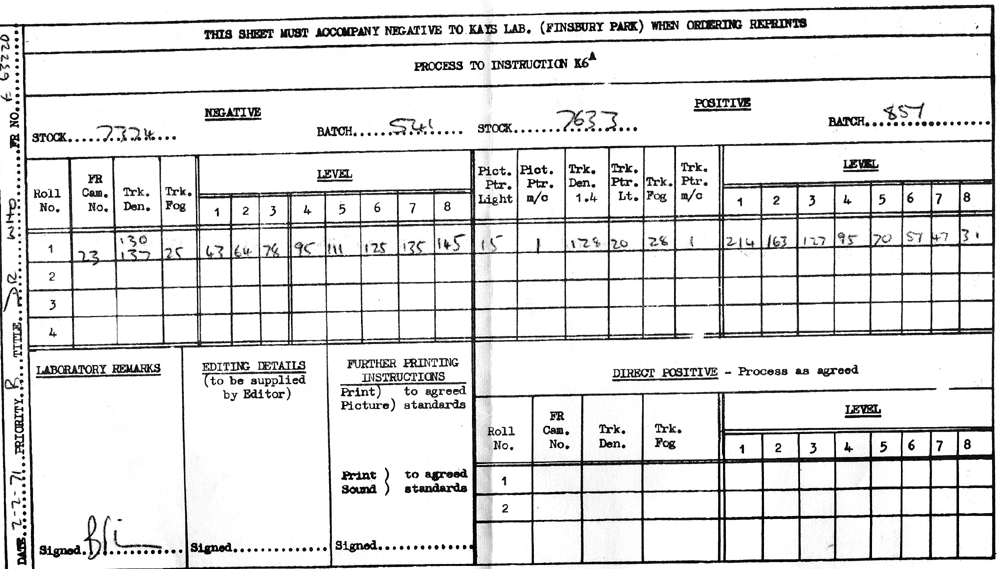 THIS SHEET MUST ACCOMPANY NEGATIVE TO KAYS LAB. (FINSBURY PARK) WHEN ORDERING REPRINTS
PROCESS TO INSTRUCTION K6A
NEGATIVE
POSITIVE
STOCK.....7374.... BATCH.....541..... STOCK.......7633....... BATCH..857...............
LEVEL
LEVEL
Roll No. FR Cam. No. Trk. Den. Trk. Fog 1 2 3 4 5 6 7 8 Pict. Ptr. Light Pict. Ptr. m/c Trk. Den. 1.4 Trk. Ptr. Lt. Trk. Fog Trk. Ptr. m/c 1 2 3 4 5 6 7 8
1 23 130 137 25 63 64 78 95 111 125 135 145 15 1 128 20 28 1 214 163 127 95 70 57 47 31
2
3
4
LABORATORY REMARKS
Signed.
EDITING DETAILS
(to be supplied
by Editor)
Signed................
FURTHER PRINTING
INSTRUCTIONS
Print) to agreed
Picture) standards
Print ) to agreed
Sound ) standards
Signed...............
DIRECT POSITIVE - Process as agreed
LEVEL
Roll No. FR Cam. No. Trk. Den. Trk. Fog 1 2 3 4 5 6 7 8
1
2
DATE.2-2-71..PRIORITY.B...TITLE....DR WHO.......FR NO..E 63220